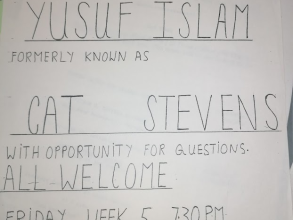 YUSUF ISLAM
FORMERLY KNOWN AS
CAT STEVENS
WITH OPPORTUNITY FOR QUESTIONS.
ALL WELCOME
FRIDAY WEEK 5 7.30 PM